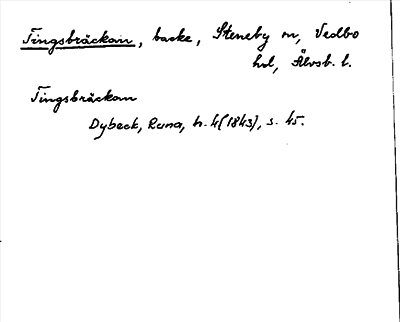 Tingsbräckan, backe, Steneby sn, Vedbo
hd, Älvsb. l.
Tingsbräckan
Dybeck, Runa, h. 4 (1843), s. 45.